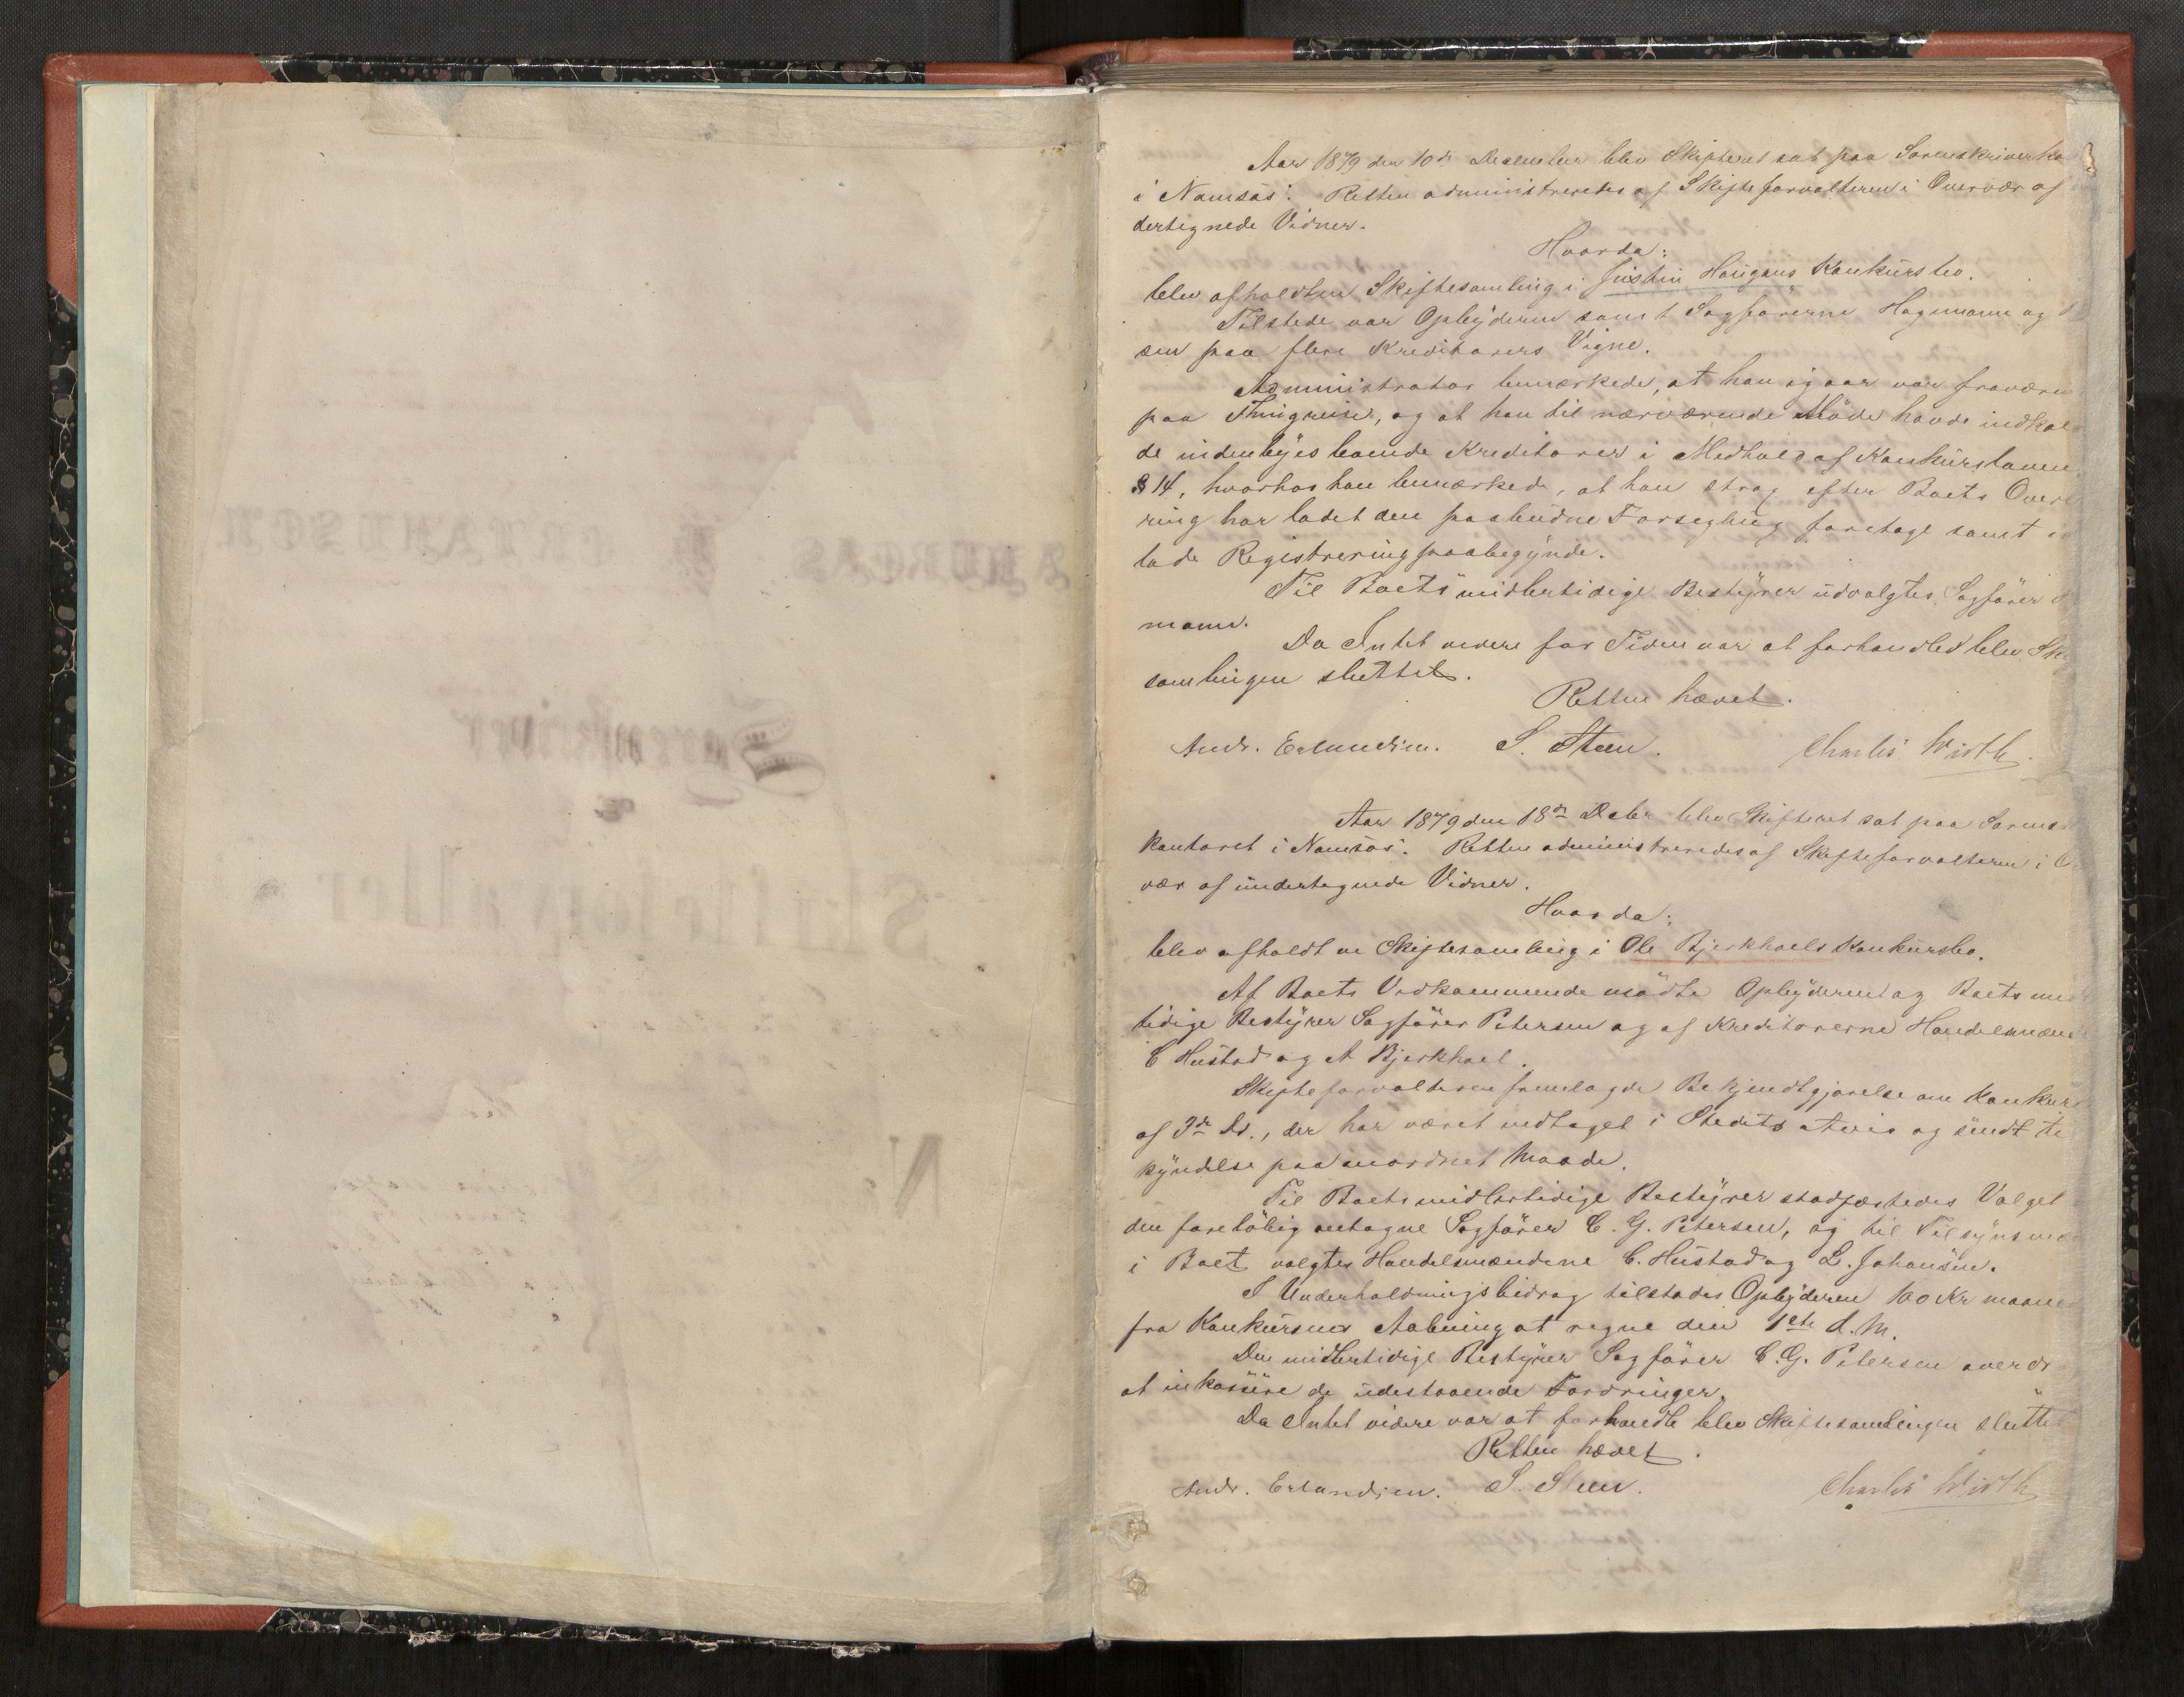 Aar 1879 den 10de December blev Skifteret sat paa Sorenskriverko
i Namsos. Retten administreredes af Skifteforvalteren i Overvær af
dertegnede Vidner.
Hvorda:
blev afholdt en Skiftesamling i Justin Haugans Konkursbo.
Tilstede var Opbyderen samt Sagførerne Hagemann og
sen paa flere Kreditorers Vegne.
Administrator bemærkede, at han igaar var fraværen
paa Thingreise, og at han til nærværende Møde havde indkal
de indenbyes boende Kreditorer i Medhold af Konkursloven
§ 14, hvorhos han bemærkede, at han strax efter Boets Over
ring har ladet den paabudne Forsegling foretage samt
lade Registrering paabegynde.
Til Boets midlertidige Bestyrer udvalgtes Sagfører
mann.
Da Intet videre for Tiden var at forhandled blev Sk
samlingen sluttet.
Retten hævet.
Andr. Erlandsen. S. Steen. Charles Wirth.
Aar 1879 den 18de Debr blev Skifteret sat paa Sorens
kontoret i Namsos. Retten administreredes af Skifteforvalteren i O
vær af undertegnede Vidner.
Hvorda:
blev afholdt en Skiftesamling i Ole Bjerkhoels Konkursbo.
Af Boets Vedkommende mødte Opbyderen og Boets mid
tidige Bestyrer Sagfører Petersen og af Kreditorerne Handelsmæn
C Hustad og A Bjerkhoel.
Skifteforvalteren fremlagde Bekjendtgjørelse om Konkurs
af 3de ds., der har været vedtaget i Stedets Avis og sendt ti
kyndelse paa anordnet Maade.
Til Boets midlertidige Bestyrer stadfæstedes Valget
den foreløbig antagne Sagfører C. G. Petersen, og til Tilsynsmæ
i Boet valgtes Handelsmændene C. Hustad og L. Johansen.
I Underholdningsbidrag tilstodes Opbyderen 100 Kr maane
fra Konkursens Aabning at regne den 1ste d. M.
Den midlertidige Bestyrer Sagfører C. G. Petersen overdr
at inkassere de udestaaende Fordringer.
Da Intet videre var at forhandle blev Skiftesamlingen slutte
Retten hævet.
Andr. Erlandsen. S. Steen. Charles Wirth